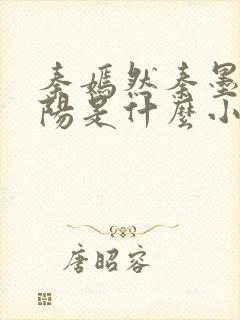 秦嫣然秦墨
陽是什麼小
唐昭容